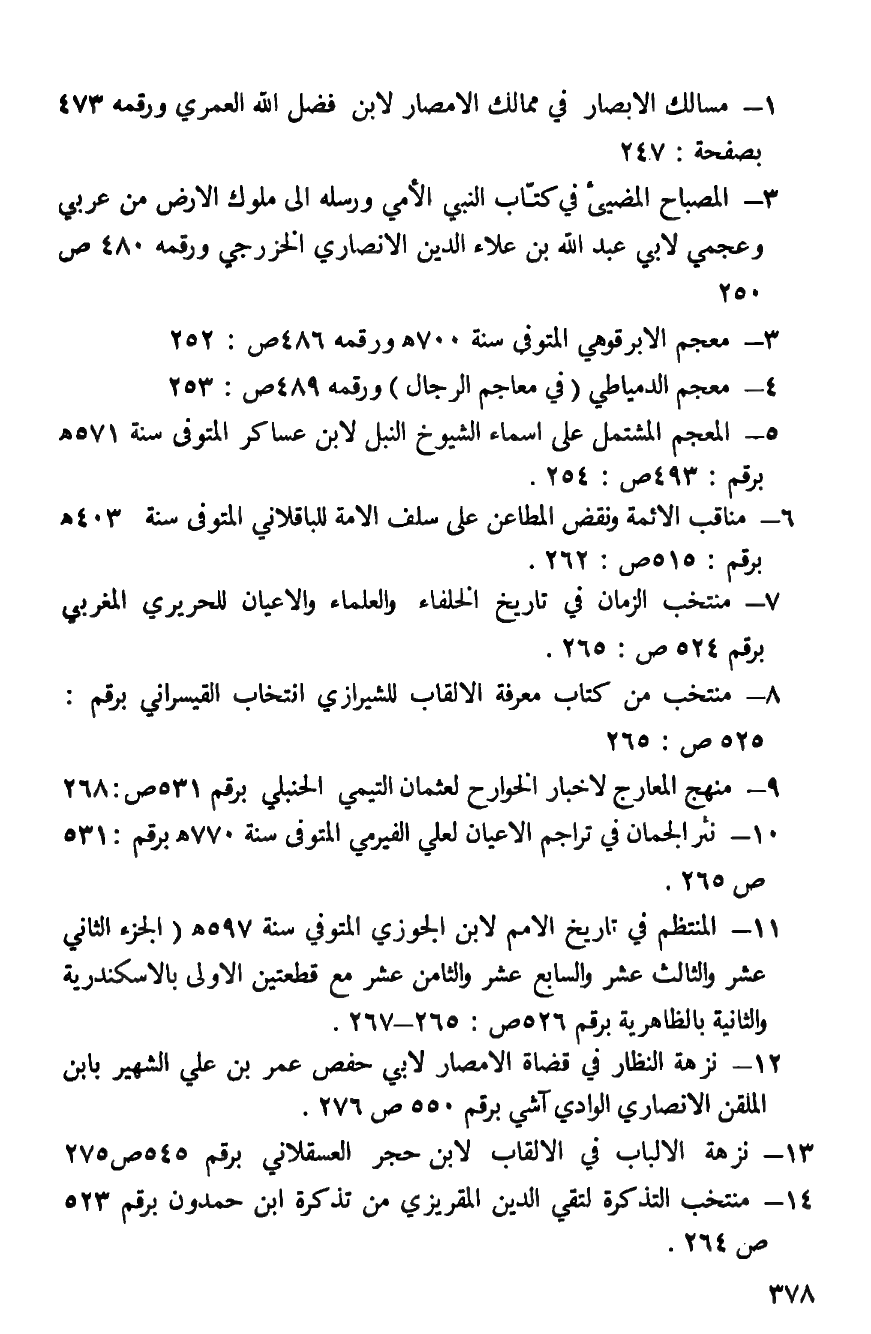 ١— مسالك الابصار في ممالك الامصار لابن فضل الله العمري ورقمه ٤٧٣
بصفحة : ٢٤٧
٣— المصباح المضيئ في كتاب النبي الأمي ورسله الى ملوك الارض من عربي
وعجمي لابي عبد الله بن علاء الدين الانصاري الخزرجي ورقمه ٤٨٠ ص
٢٥٠
٣— معجم الابرقوهي المتوفي سنة ٧٠٠ه ورقمه ٤٨٦ص : ٢٥٢
٤— معجم الدمياطي ( في معاجم الرجال ) ورقمه ٤٨٩ص : ٢٥٣
٥— المعجم المشتمل على اسماء الشيوخ النبل لابن عساكر المتوفى سنة ٥٧١ه
برقم : ٤٩٣ص : ٢٥٤ .
٦— مناقب الائمة ونقض المطاعن على سلف الامة للباقلاني المتوفى سنة ٤٠٣ه
برقم : ٥١٥ص : ٢٦٢ .
٧— منتخب الزمان في تاريخ الخلفاء والعلماء والاعيان للحريري المغربي
برقم ٥٢٤ ص : ٢٦٥ .
٨— منتخب من كتاب معرفة الالقاب للشيرازي انتخاب القيسراني برقم :
٥٢٥ ص : ٢٦٥
٩— منهج المعارج لاخبار الخوارح لعثمان التيمي الحنبلي برقم ٥٣١ص:٢٦٨
١٠— نثر الجمان في تراجم الاعيان لعلي الفيرمي المتوفى سنة ٧٧٠ه برقم :٥٣١
ص ٢٦٥ .
١١— المنتظم في تاريخ الامم لابن الجوزي المتوفي سنة ٥٩٧ه ( الجزء الثاني
عشر والثالث عشر والسابع عشر والثامن عشر مع قطعتين الاولى بالاسكندرية
والثانية بالظاهرية برقم ٥٢٦ص : ٢٦٥—٢٦٧ .
١٢— نزهة النظار في قضاة الامصار لابي حفص عمر بن علي الشهير بابن
الملقن الانصاري الوادي آشي برقم ٥٥٠ ص ٢٧٦ .
١٣— نزهة الالباب في الالقاب لابن حجر العسقلاني برقم ٥٤٥ص٢٧٥
١٤— منتخب التذكرة لتقي الدين المقريزي من تذكرة ابن حمدون برقم ٥٢٣
ص ٢٦٤ .
٣٧٨